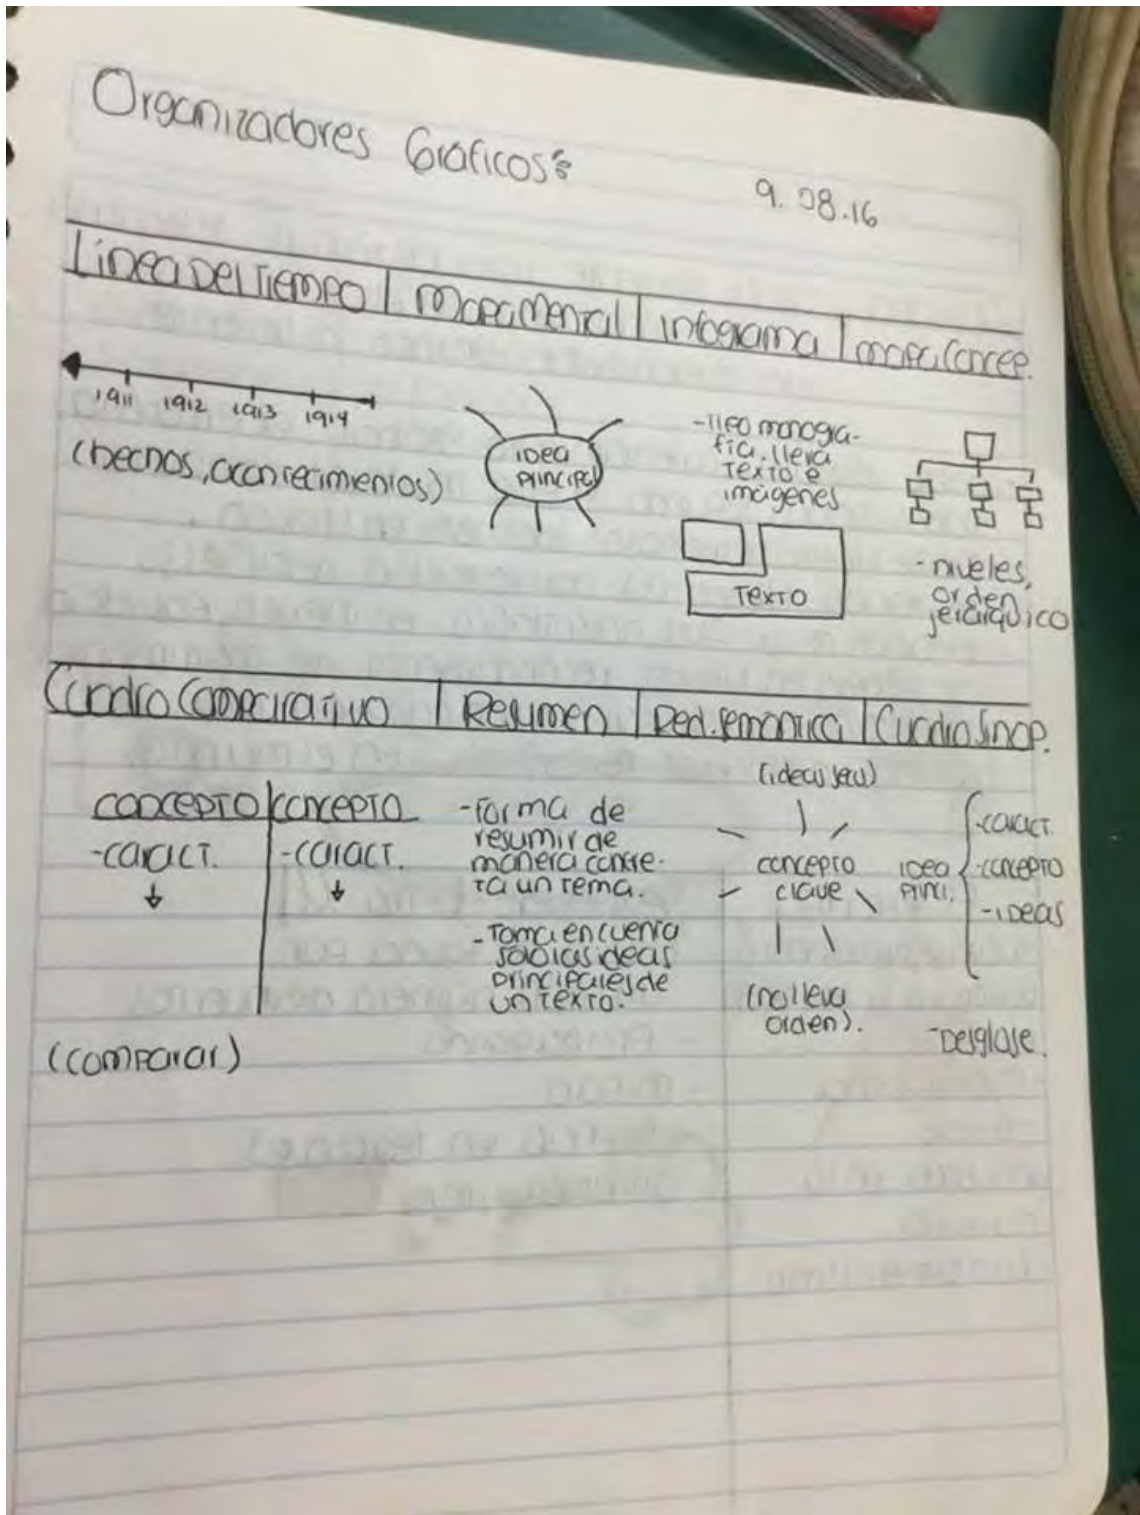 Organizadores Gráficos:
9.08.16
Línea Del Tiempo | Mapa Mental | infograma | mapa Concep.
1911 1912 1913 1914
(hechos, acontecimientos)
idea
principal
-tipo monogra-
fía. lleva
texto e
imágenes
TEXTO
-niveles,
orden
jerárquico
Cuadro Comparativo | Resumen | Red. semantica | Cuadro Sinop.
concepto concepto
-caract. -caract.
(comparar)
-forma de
resumir de
manera concre-
ta un tema.
-Toma en cuenta
solo las ideas
principales de
un texto.
(idea secu)
concepto
clave
(no lleva
orden).
idea
princi.
-caract.
-concepto
-ideas
-Desglose.